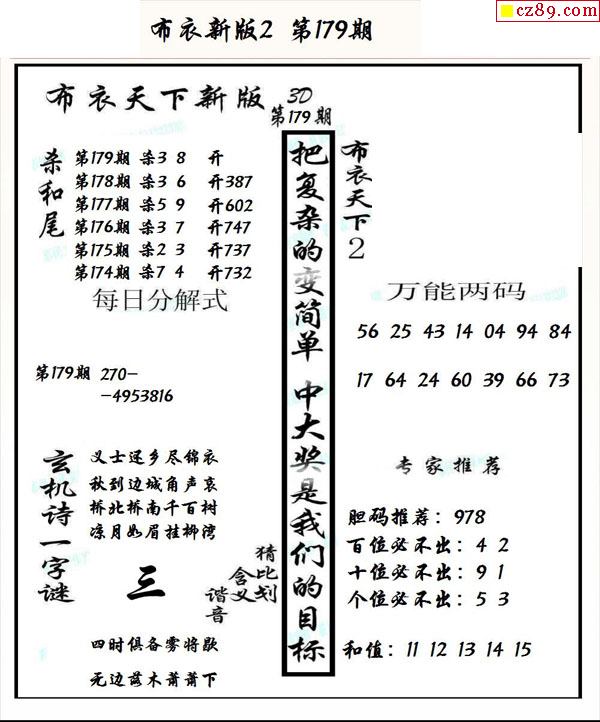 cz89.com
布衣新版2 第179期
布衣天下新版 3D
第179期
杀和尾
第179期 杀3 8 开
第178期 杀3 6 开387
第177期 杀5 9 开602
第176期 杀3 7 开747
第175期 杀2 3 开737
第174期 杀7 4 开732
每日分解式
第179期 270-
-4953816
玄机诗一字谜
义士还乡尽锦衣
秋到边城角声哀
桥北桥南千百树
凉月如眉挂柳湾
三
猜比划
含义
谐音
四时俱备雾将歇
无边落木萧萧下
把复杂的变简单 中大奖是我们的目标
布衣天下2
万能两码
56 25 43 14 04 94 84
17 64 24 60 39 66 73
专家推荐
胆码推荐：978
百位必不出：4 2
十位必不出：9 1
个位必不出：5 3
和值：11 12 13 14 15